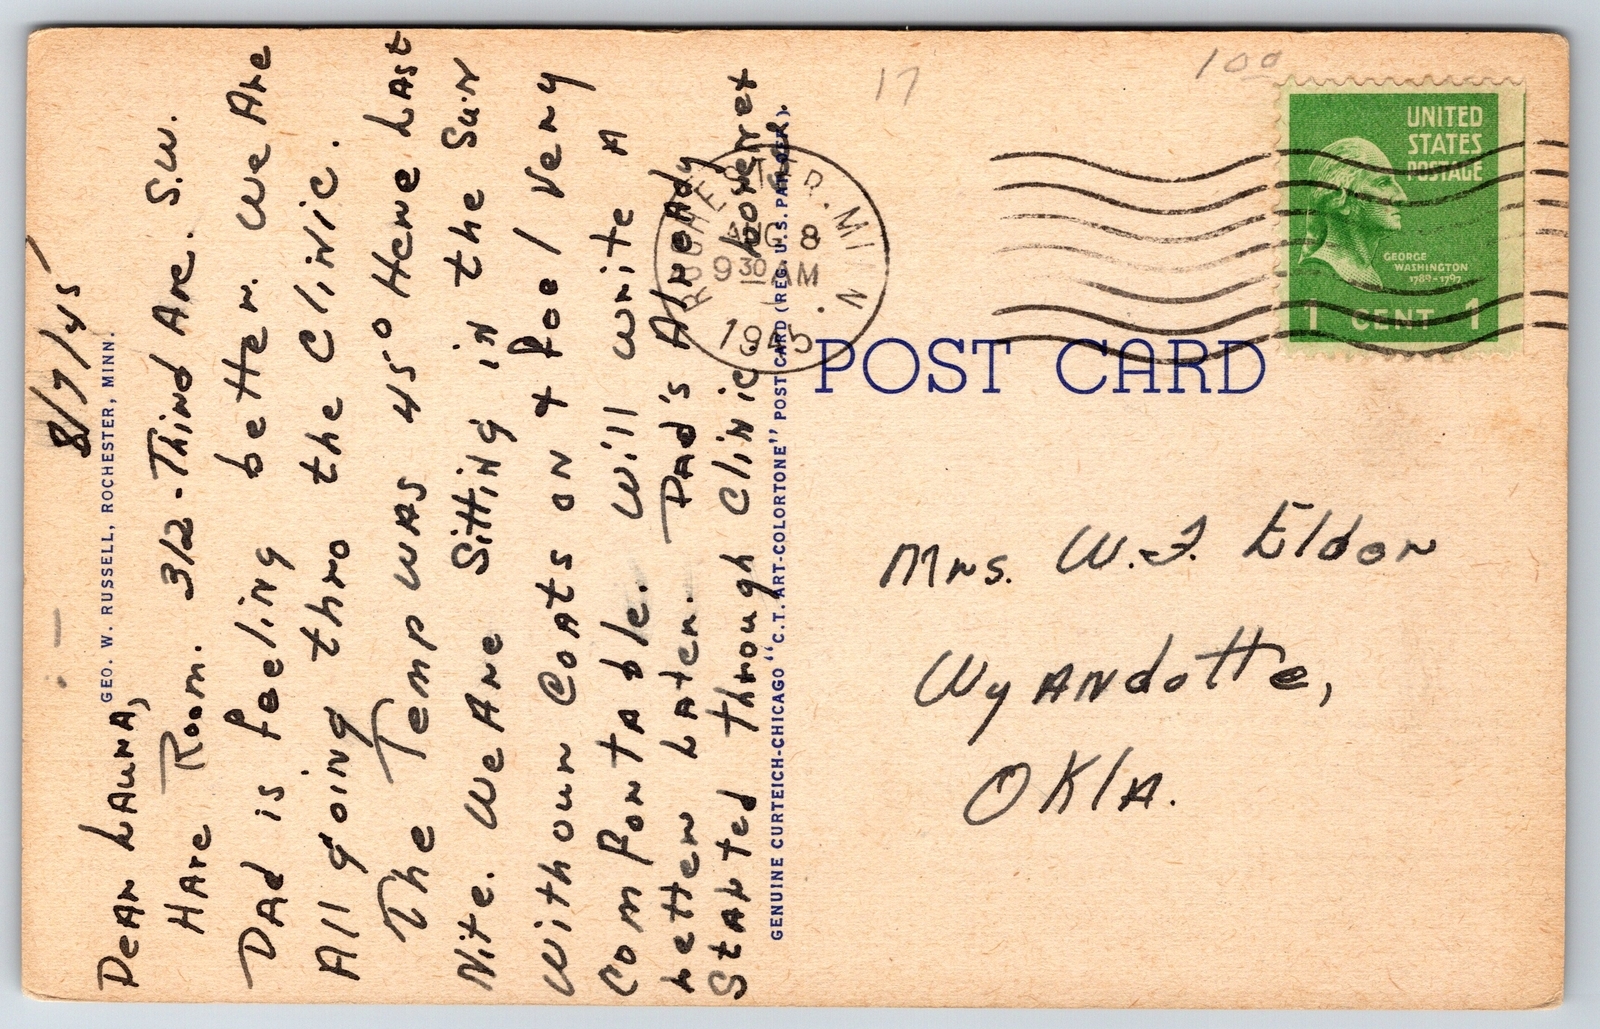 8/7/45
GEO. W. RUSSELL, ROCHESTER, MINN.
Dear Laura,
Have Room. 312 - Third Ave. S.W.
Dad is feeling better. We Are
All going thro the Clinic.
The Temp was 45° Here Last
Nite. We Are Sitting in the Sun
With our Coats on & feel Very
Comfortable. Will write A
Letter Later. Dad's Already
Started through Clinic.
GENUINE CURTEICH-CHICAGO "C.T. ART-COLORTONE" POST CARD (REG. U.S. PAT. OFF.)
17
100
ROCHESTER, MINN.
AUG 8
9 30 AM
1945
UNITED
STATES
POSTAGE
GEORGE
WASHINGTON
1789-1797
1 CENT 1
POST CARD
Mrs. W. F. Eldon
Wyandotte,
Okla.